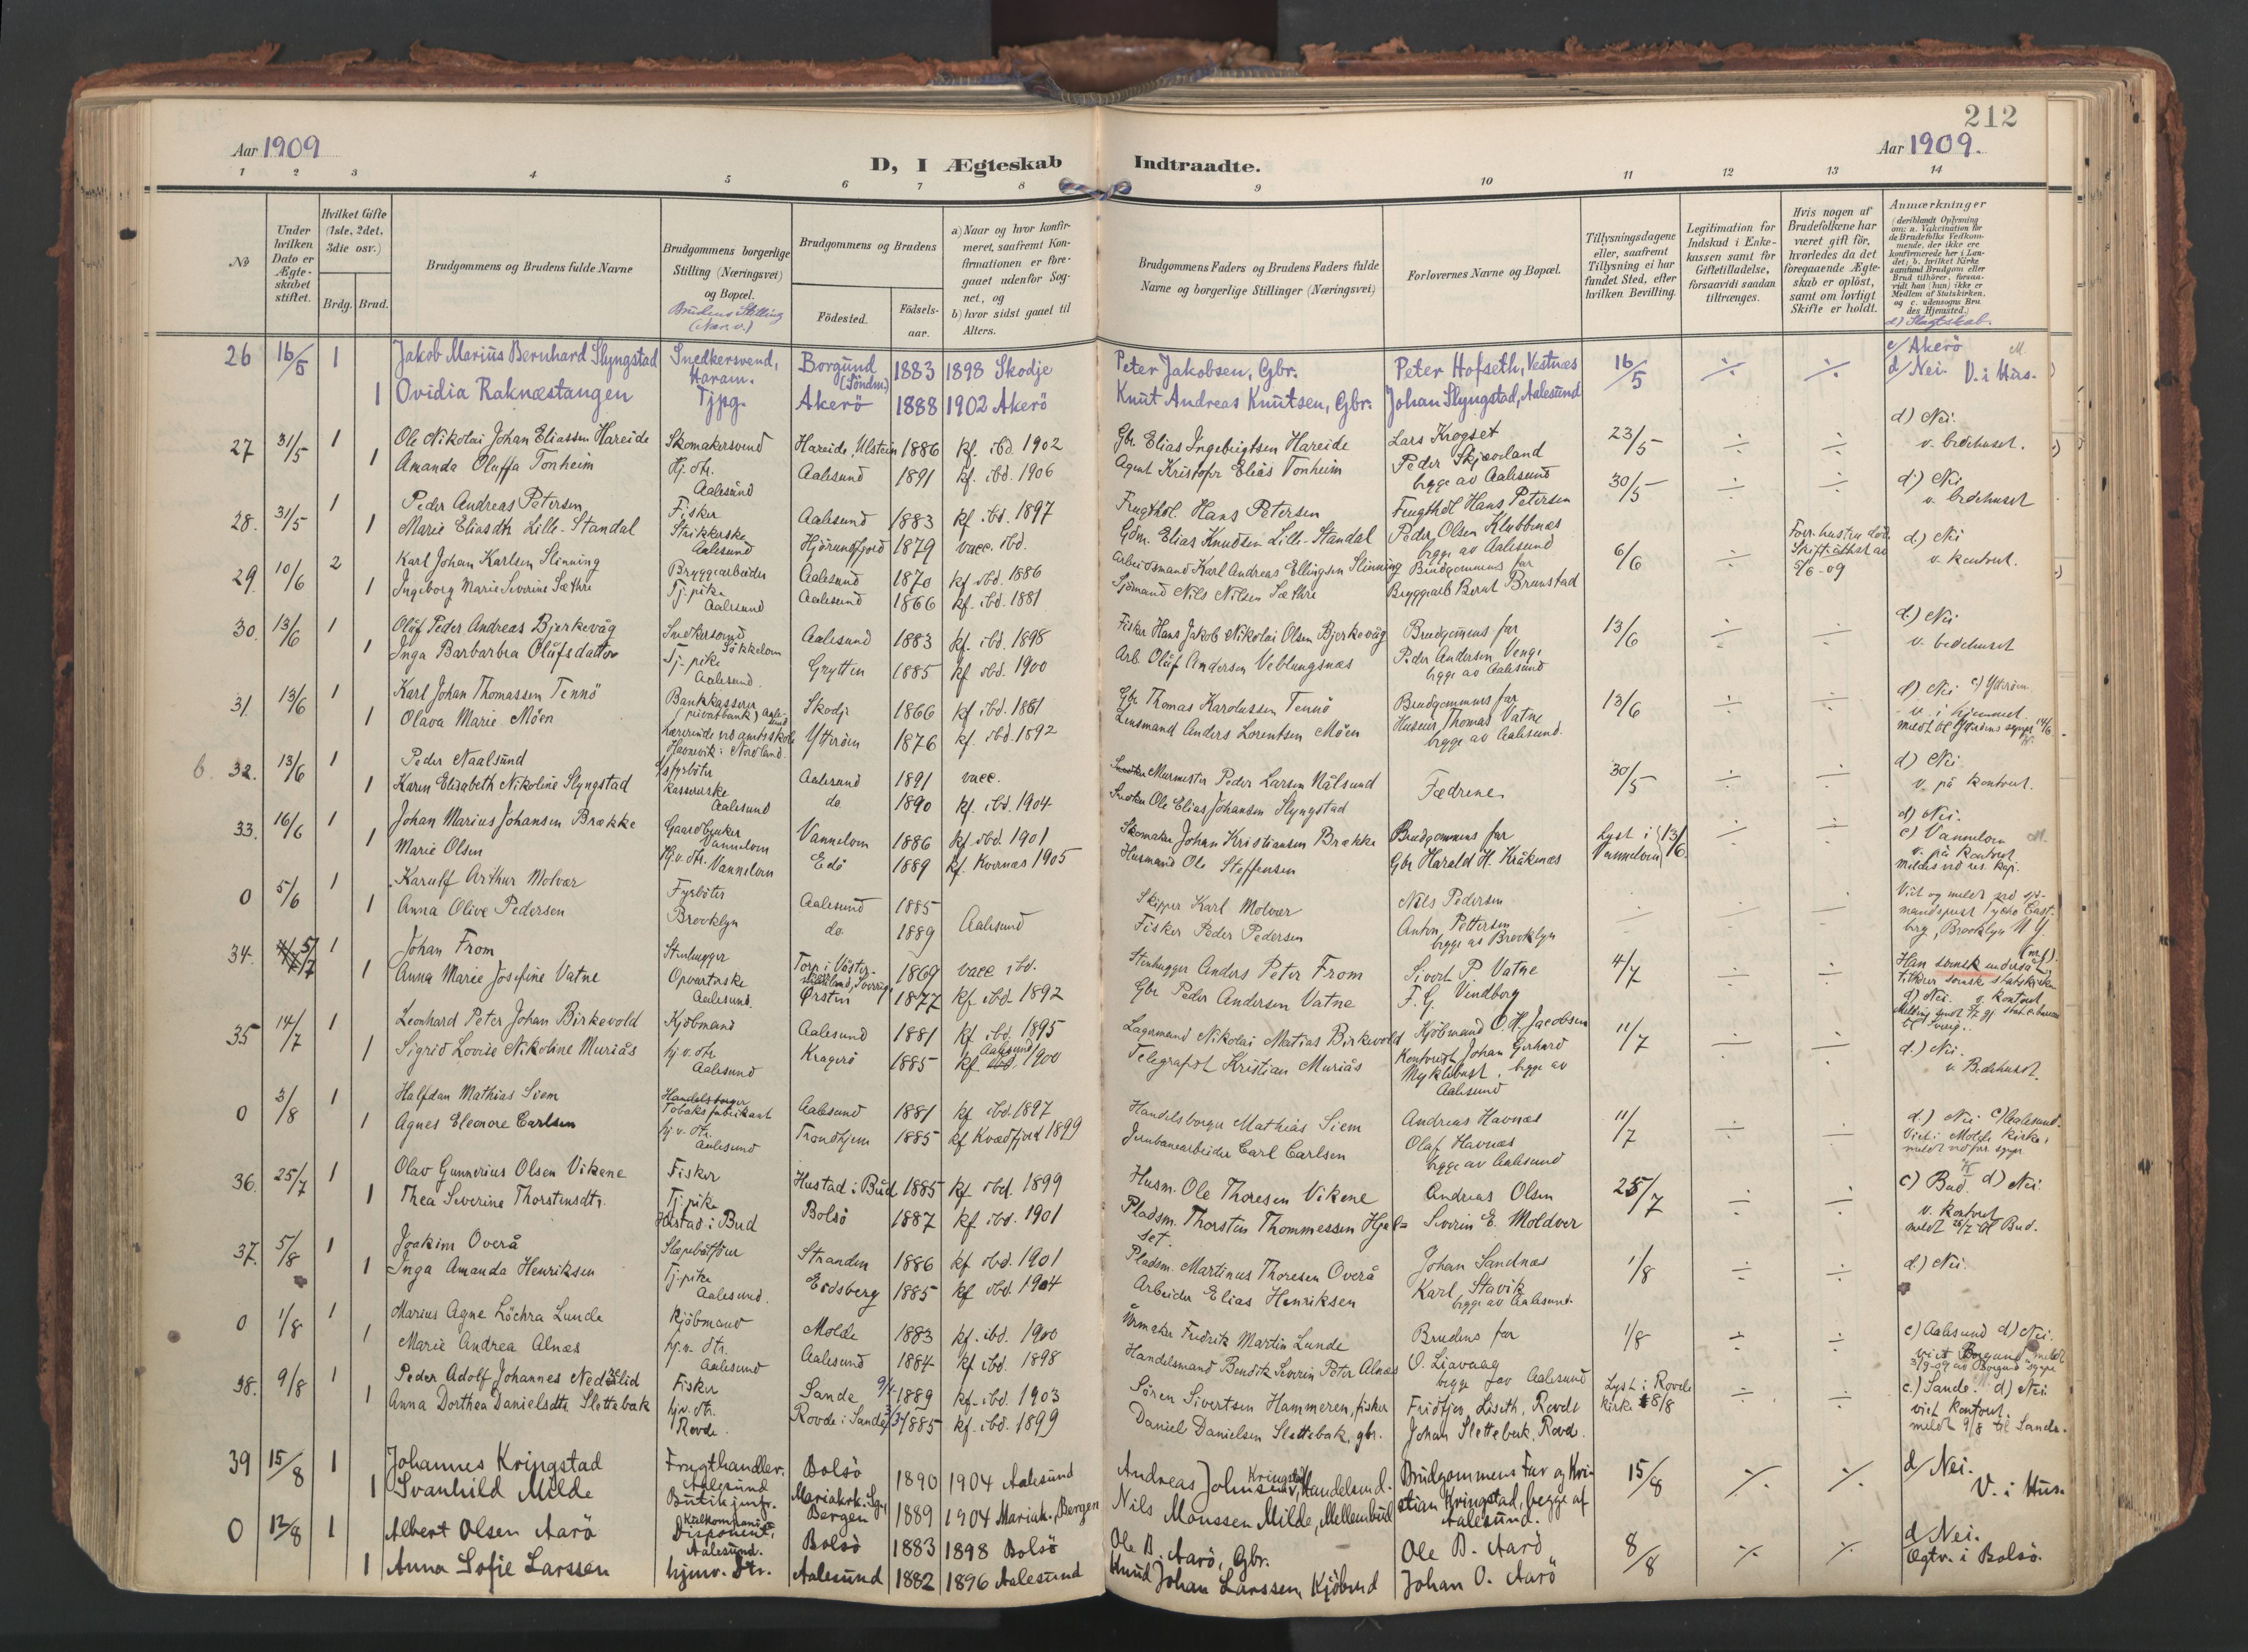 212
Aar 1909
D, I Ægteskab Indtraadte.
Aar 1909.
1 2 3 4 5 6 7 8 9 10 11 12 13 14
No
Under hvilken Dato er Ægteskabet stiftet.
Hvilket Gifte (1ste, 2det, 3die osv.)
Brdg. Brud.
Brudgommens og Brudens fulde Navne
Brudgommens borgerlige Stilling (Næringsvei) og Bopæl.
Brudens Stilling (Nær.v.)
Brudgommens og Brudens
Fødested.
Fødselsaar.
a) Naar og hvor konfirmeret, saafremt Konfirmationen er foregaaet udenfor Sognet, og
b) hvor sidst gaaet til Alters.
Brudgommens Faders og Brudens Faders fulde Navne og borgerlige Stillinger (Næringsvei)
Forlovernes Navne og Bopæl.
Tillysningsdagene eller, saafremt Tillysning ei har fundet Sted, efter hvilken Bevilling.
Legitimation for Indskud i Enkekassen samt for Giftetilladelse, forsaavidt saadan tiltrænges.
Hvis nogen af Brudefolkene har været gift før, hvorledes da det foregaaende Ægteskab er opløst, samt om lovligt Skifte er holdt.
Anmærkninger
(deriblandt Oplysning om: a. Vakcination for de Brudefolks Vedkommende, der ikke ere konfirmerede her i Landet; b. hvilket Kirkesamfund Brudgom eller Brud tilhører, forsaavidt han (hun) ikke er Medlem af Statskirken, og c. udensogns Brudes Hjemsted.)
d) Slagtskab.
26 16/5 1 Jakob Marius Bernhard Slyngstad Snedkersvend, Haram. Borgund (Söndm.) 1883 1898 Skodje Peter Jakobsen, Gbr. Peter Hofseth, Vestnæs 16/5 ÷ ÷ c/ Akerö
1 Ovidia Raknæstangen Tjpg. Akerö 1888 1902 Akerö Knut Andreas Knutsen, Gbr. Johan Slyngstad, Aalesund d/ Nei. V. i Hus.
27 31/5 1 Ole Nikolai Johan Eliassen Hareide Skomakersvend Hareide, Ulstein 1886 kf. ibd. 1902 Gbr Elias Ingebrigtsen Hareide Lars Krogset 23/5 ÷ ÷ d) Nei.
1 Amanda Oluffa Tonheim Hj. dtr. Aalesund Aalesund 1891 kf. ibd. 1906 Agent Kristofer Elias Tonheim Peder Skjævland begge av Aalesund v. bedehuset.
28. 31/5 1 Peder Andreas Petersen Fisker Aalesund 1883 kf. ibd. 1897 Frugthdl. Hans Petersen Frugthdl Hans Petersen 30/5 ÷ ÷ d) Nei
1 Marie Eliasdtr Lille-Standal Strikkerske Aalesund Hjörundfjord 1879 vacc. ibd. Gdm. Elias Knudsen Lille-Standal Peder Olsen Klubbenæs begge av Aalesund v. bedehuset
29. 10/6 2 Karl Johan Karlsen Slinning Bryggearbeider Aalesund 1870 kf. ibd. 1886 Arbeidsmand Karl Andreas Ellingsen Slinning Brudgommens far 6/6 ÷ Forr. hustru död. Skifteattest av 5/6-09 d) Nei
1 Ingeborg Marie Severine Sæthre Tj.pike Aalesund Aalesund 1866 kf. ibd. 1881 Sjömand Nils Nilsen Sæthre Bryggearb Bernt Brunstad v. kontoret.
30. 13/6 1 Oluf Peder Andreas Bjerkevåg Snedkersvend Sökkelven Aalesund 1883 kf. ibd. 1898 Fisker Hans Jakob Nikolai Olsen Bjerkevåg Brudgommens far 13/6 ÷ ÷ d.) Nei
1 Inga Barbarbra Olufsdatter Tj.pike Aalesund. Grytten 1885 kf ibd. 1900 Arb. Oluf Andersen Veblungsnæs Peder Andersen Venge begge av Aalesund v. bedehuset
31. 13/6 1 Karl Johan Thomassen Tennö Bankkasserer (privatbank) Aalesund Skodje 1866 kf. ibd. 1881 Gbr Thomas Karolussen Tennö Brudgommens far 13/6 ÷ ÷ d) Nei c) Ytteröen
1 Olava Marie Möen Lærerinde ved amtsskole Havnevik i Nordland. Ytteröen 1876 kf. ibd. 1892 Lensmand Anders Lorentsen Möen Husmr. Thomas Vatne begge av Aalesund. v. i hjemmet. meldt til Ytteröens sogpr 14/6
b. 32. 13/6 1 Peder Naalsund fyrböter Aalesund 1891 vacc. Murmester Peder Larsen Nålsund Fædrene. 30/5 ÷ ÷ d) Nei
1 Karen Elisabeth Nikoline Slyngstad Kassererske Aalesund do. 1890 kf. ibd. 1904 Snedker Ole Elias Johansen Slyngstad v. på kontoret.
33. 16/6 1 Johan Marius Johansen Brække Gaardbruker Vannelven Vannelven 1886 kf. ibd. 1901 Skomaker Johan Kristiansen Brække Brudgommens far Lyst i Vannelven 13/6. ÷ ÷ d) Nei.
1 Marie Olsen Hj.v. dtr. Vannelven Edö 1889 kf. Kvernæs 1905 Husmand Ole Steffensen Gbr Harald H. Kråknæs c) Vannelven v. på kontoret meldes ved res. kap.
0 5/6 1 Karulf Arthur Molvær Fyrböter Aalesund 1885 Skipper Karl Molvær Nils Pedersen
1 Anna Olive Pedersen Brooklyn do. 1889 Aalesund Fisker Peder Pedersen Anton Pettersen begge av Brooklyn Viet og meldt ved sjömandsprest Tycho Castberg, Brooklyn N.Y.
34. 5/7 1 Johan From Stenhugger Torp i Väster- Sverige 1869 vacc ibd. Stenhugger Anders Peter From Sivert P. Vatne 4/7 ÷ ÷ Han svensk undersåt, tilhører svenske statskirke
1 Anna Marie Josefine Vatne Opvarterske Aalesund. Ørsten 1877 kf. ibd. 1892 Gbr Peder Andersen Vatne F. G. Vindberg d) Nei. v. kontoret
35 14/7 1 Leonhard Peter Johan Birkevold Kjöbmand Aalesund 1881 kf. ibd. 1895 Lagermand Nikolai Matias Birkevold Kjöbmand O. H. Jacobsen 11/7 ÷ ÷ d.) Nei.
1 Sigrid Lovise Nikoline Muriås hj.v. dtr. Aalesund Kragerö 1885 kf. Aalesund 1900 Telegrafist Kristian Muriås Kontorist Johan Gerhard Myklebust, begge av Aalesund v. Bedehuset.
0 3/8 1 Halfdan Mathias Siem Handelsborger Tobaksfabrikant Aalesund 1881 kf ibd. 1897 Handelsborger Mathias Siem Andreas Havnæs 11/7 ÷ ÷ d.) Nei c) Aalesund.
1 Agnes Eleonore Carlsen hj.v. dtr. Aalesund Trondhjem 1885 kf Kvædfjord 1899 Jernbanearbeider Carl Carlsen Olaf Havnæs begge av Aalesund Viet i Molde kirke,
36. 25/7 1 Olav Gunnerius Olsen Vikene Fisker Hustad i Bud 1885 kf. ibd. 1899 Husm. Ole Thoresen Vikene Andreas Olsen 25/7 ÷ ÷ c) Bud. d) Nei.
1 Thea Severine Thorstensdtr. Tj.pike Hustad i Bud Bolsö 1887 kf. ibd. 1901 Pladsm. Thorsten Thommessen Hjelset. Severin E. Moldver v. kontoret meldt 26/7 til Bud.
37. 5/8 1 Joakim Overå Slæpebåtförer Stranden 1886 kf ibd. 1901 Pladsm. Martinus Thoresen Overå Johan Sandnæs 1/8 ÷ ÷ d.) Nei.
1 Inga Amanda Henriksen Tj.pike Aalesund. Eidsberg 1885 kf ibd. 1904 Arbeider Elias Henriksen Karl Stavik begge av Aalesund.
0 1/8 1 Marius Agne Löchra Lunde Kjöbmand Molde 1883 kf. ibd. 1900 Urmaker Fredrik Martin Lunde Brudens far 1/8 ÷ ÷ c) Aalesund d) Nei.
1 Marie Andrea Alnæs hj.v. dtr. Aalesund Aalesund 1884 kf ibd. 1898 Handelsmand Bendik Severin Peter Alnæs O. Liavaag begge av Aalesund viet Borgund meldt 3/9-09 av Borgund sogpr
38. 9/8 1 Peder Adolf Johannes Nedrelid Fisker Sande 9/4 1889 kf. ibd. 1903 Sören Sivertsen Hammeren, fisker Fridtjov Liseth, Rovde Lyst i Rovde kirke 8/8 ÷ ÷ c.) Sande. d) Nei
1 Anna Dorthea Danielsdtr Slettebak hj.v. dtr. Rovde. Rovde i Sande 3/3 1885 kf. ibd. 1899 Daniel Danielsen Slettebak, gbr. Johan Slettebak, Rovde. viet kontoret. meldt 9/8 til Sande.
39 15/8 1 Johannes Kringstad Frugthandler. Aalesund Bolsö 1890 1904 Aalesund Andreas Johnsen Kringstad, Handelsmd. Brudgommens Far og Kristian Kringstad, begge af Aalesund. 15/8 ÷ ÷ d/ Nei.
1 Svanhild Milde Butikjomfr. Mariakrk. Sg., Bergen 1889 1904 Mariak., Bergen Nils Monssen Milde, Mellembud V. i Hus.
0 12/8 1 Albert Olsen Aarö Kulkompani Disponent, Aalesund. Bolsö 1883 1898 Bolsö Ole B. Aarö, Gbr. Ole B. Aarö 8/8 ÷ ÷ d/ Nei.
1 Anna Sofie Larssen hjmv. Dtr. Aalesund 1882 1896 Aalesund Knud Johan Larssen, Kjöbmd Johan O. Aarö Ægtv. i Bolsö.